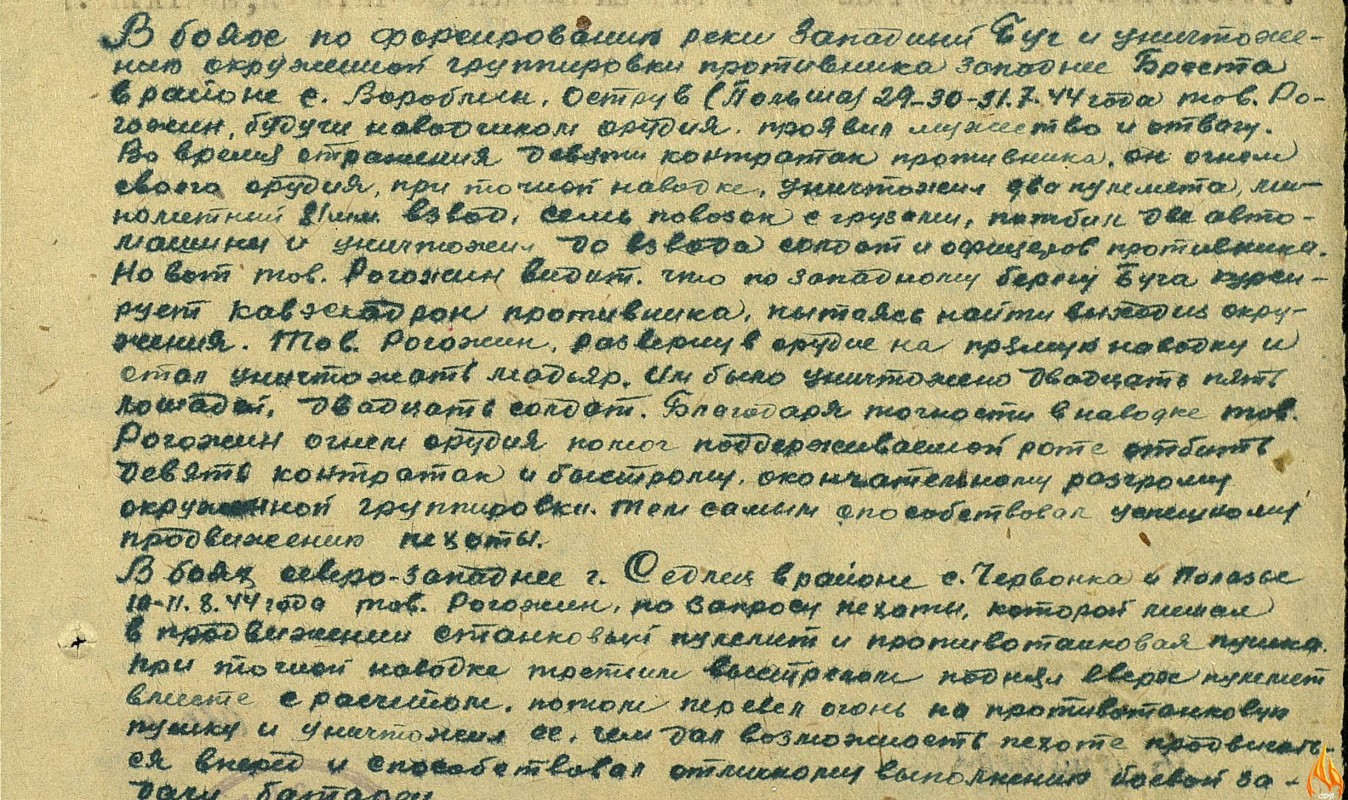 В боях по форсированию реки Западный Буг и уничтоже-
нию окруженной группировки противника западнее Бреста
в районе с. Вороблин, Остров (Польша) 29-30-31.7.44 года тов. Ро-
гожин, будучи наводчиком орудия, проявил мужество и отвагу.
Во время отражения девяти контратак противника, он огнем
своего орудия, при точной наводке, уничтожил два пулемета, ми-
нометный 81 мм. взвод, семь повозок с грузами, подбил две авто-
машины и уничтожил до взвода солдат и офицеров противника.
Но вот тов. Рогожин видит, что по западному берегу Буга курси-
рует кавэскадрон противника, пытаясь найти выход из окру-
жения. Тов. Рогожин, развернув орудие на прямую наводку и
стал уничтожать мадьяр. Им было уничтожено двадцать пять
лошадей, двадцать солдат. Благодаря точности в наводке тов.
Рогожин огнем орудия помог поддерживаемой роте отбить
девять контратак и быстрому, окончательному разгрому
окруженной группировки. Тем самым способствовал успешному
продвижению пехоты.
В боях северо-западнее г. Седлец в районе с. Червонка и Полазье
10-11.8.44 года тов. Рогожин, по запросу пехоты, которой мешал
в продвижении станковый пулемет и противотанковая пушка.
При точной наводке третьим выстрелом поднял вверх пулемет
вместе с расчетом, потом перевел огонь на противотанковую
пушку и уничтожил ее, чем дал возможность пехоте продвигать-
ся вперед и способствовал отличному выполнению боевой за-
дачи батареи